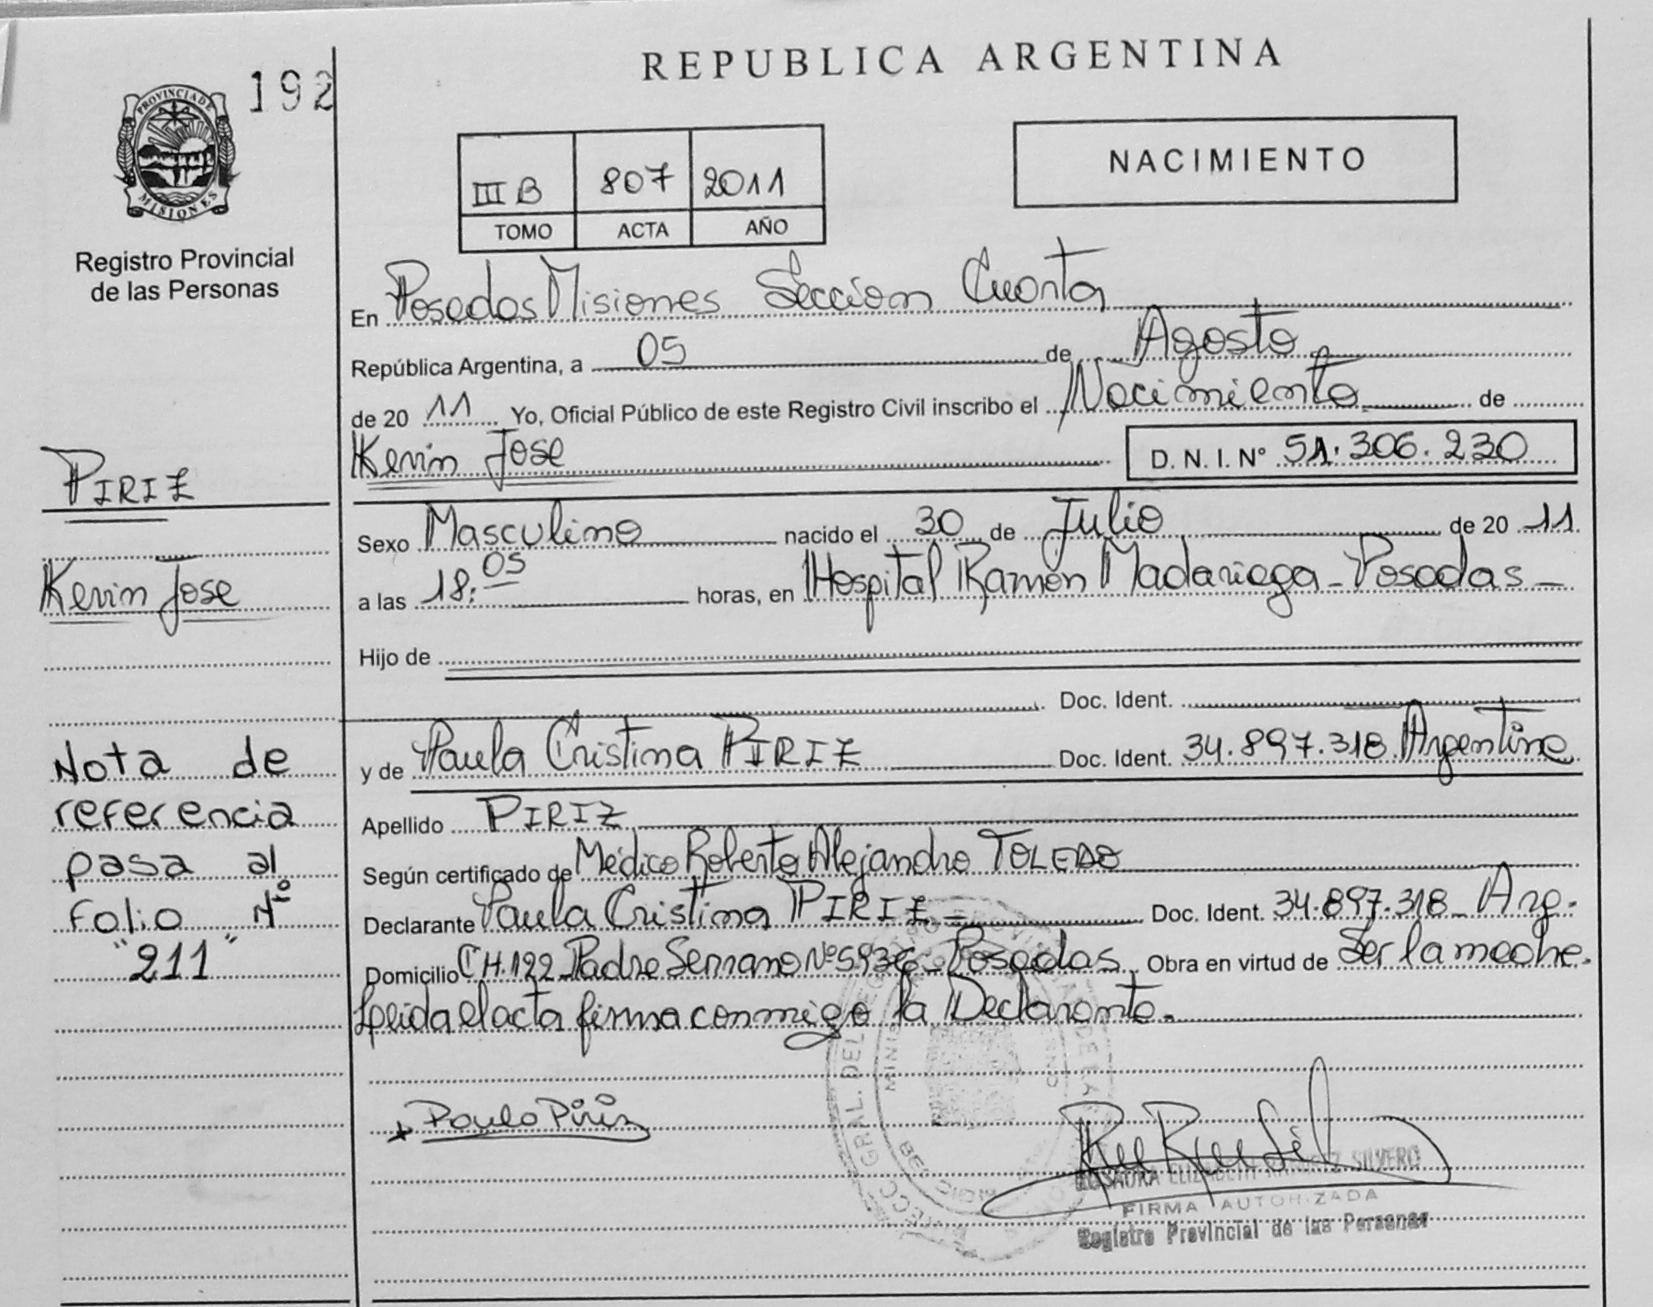 192
REPUBLICA ARGENTINA
PROVINCIA DE
MISIONES
Registro Provincial
de las Personas
III B 807 2011
TOMO ACTA AÑO
NACIMIENTO
En Posadas Misiones Seccion Cuarta
República Argentina, a 05 de Agosto
de 20 11 Yo, Oficial Público de este Registro Civil inscribo el Nacimiento de
Kevin Jose D. N. I. N° 51.306.230
PIRIZ
Kevin Jose
Sexo Masculino nacido el 30 de Julio de 20 11
a las 18:05 horas, en Hospital Ramón Madariaga - Posadas -
Hijo de
Doc. Ident.
y de Paula Cristina PIRIZ Doc. Ident. 34.897.318 Argentina
Apellido PIRIZ
Según certificado de Médico Roberto Alejandro TOLEDO
Declarante Paula Cristina PIRIZ - Doc. Ident. 34.897.318 - Arg.
Domicilio CH.122 Padre Serrano N° 5936 - Posadas. Obra en virtud de Ser la madre.
Leida el acta firma conmigo la Declarante.
Nota de
referencia
pasa al
Folio N°
"211"
Paula Piriz
SILVERO
FIRMA AUTORIZADA
Registro Provincial de las Personas